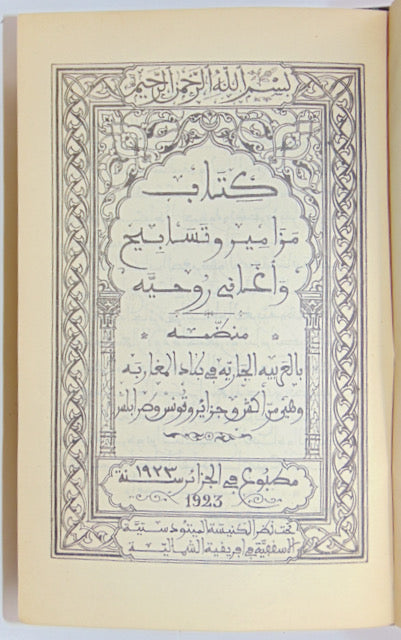 بسم الله الرحمن الرحيم
كتاب
مزامير وتسابيح
وأغاني روحيه
منظمه
بالعربيه الجاريه في بلاد المغاربه
وهي مراكش وجزائر وتونس وطرابلس
مطبوع في الجزائر سنة ١٩٢٣
1923
تحت نظر الكنيسة الميتودستية
الاسقفية في افريقية الشمالية